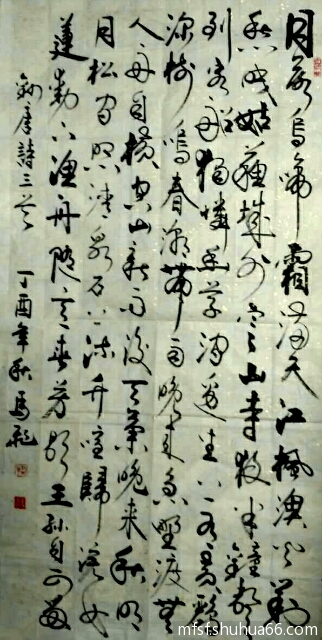 月落烏啼霜滿天江楓漁火對
愁眠姑蘇城外寒山寺夜半鐘聲
到客船獨憐幽草澗邊生上有黃鸝
深樹鳴春潮帶雨晚來急野渡無
人舟自橫空山新雨後天氣晚來秋明
月松間照清泉石上流竹喧歸浣女
蓮動下漁舟隨意春芳歇王孫自可留
錄唐詩三首 丁酉年秋馬
mfsfshuhua66.com